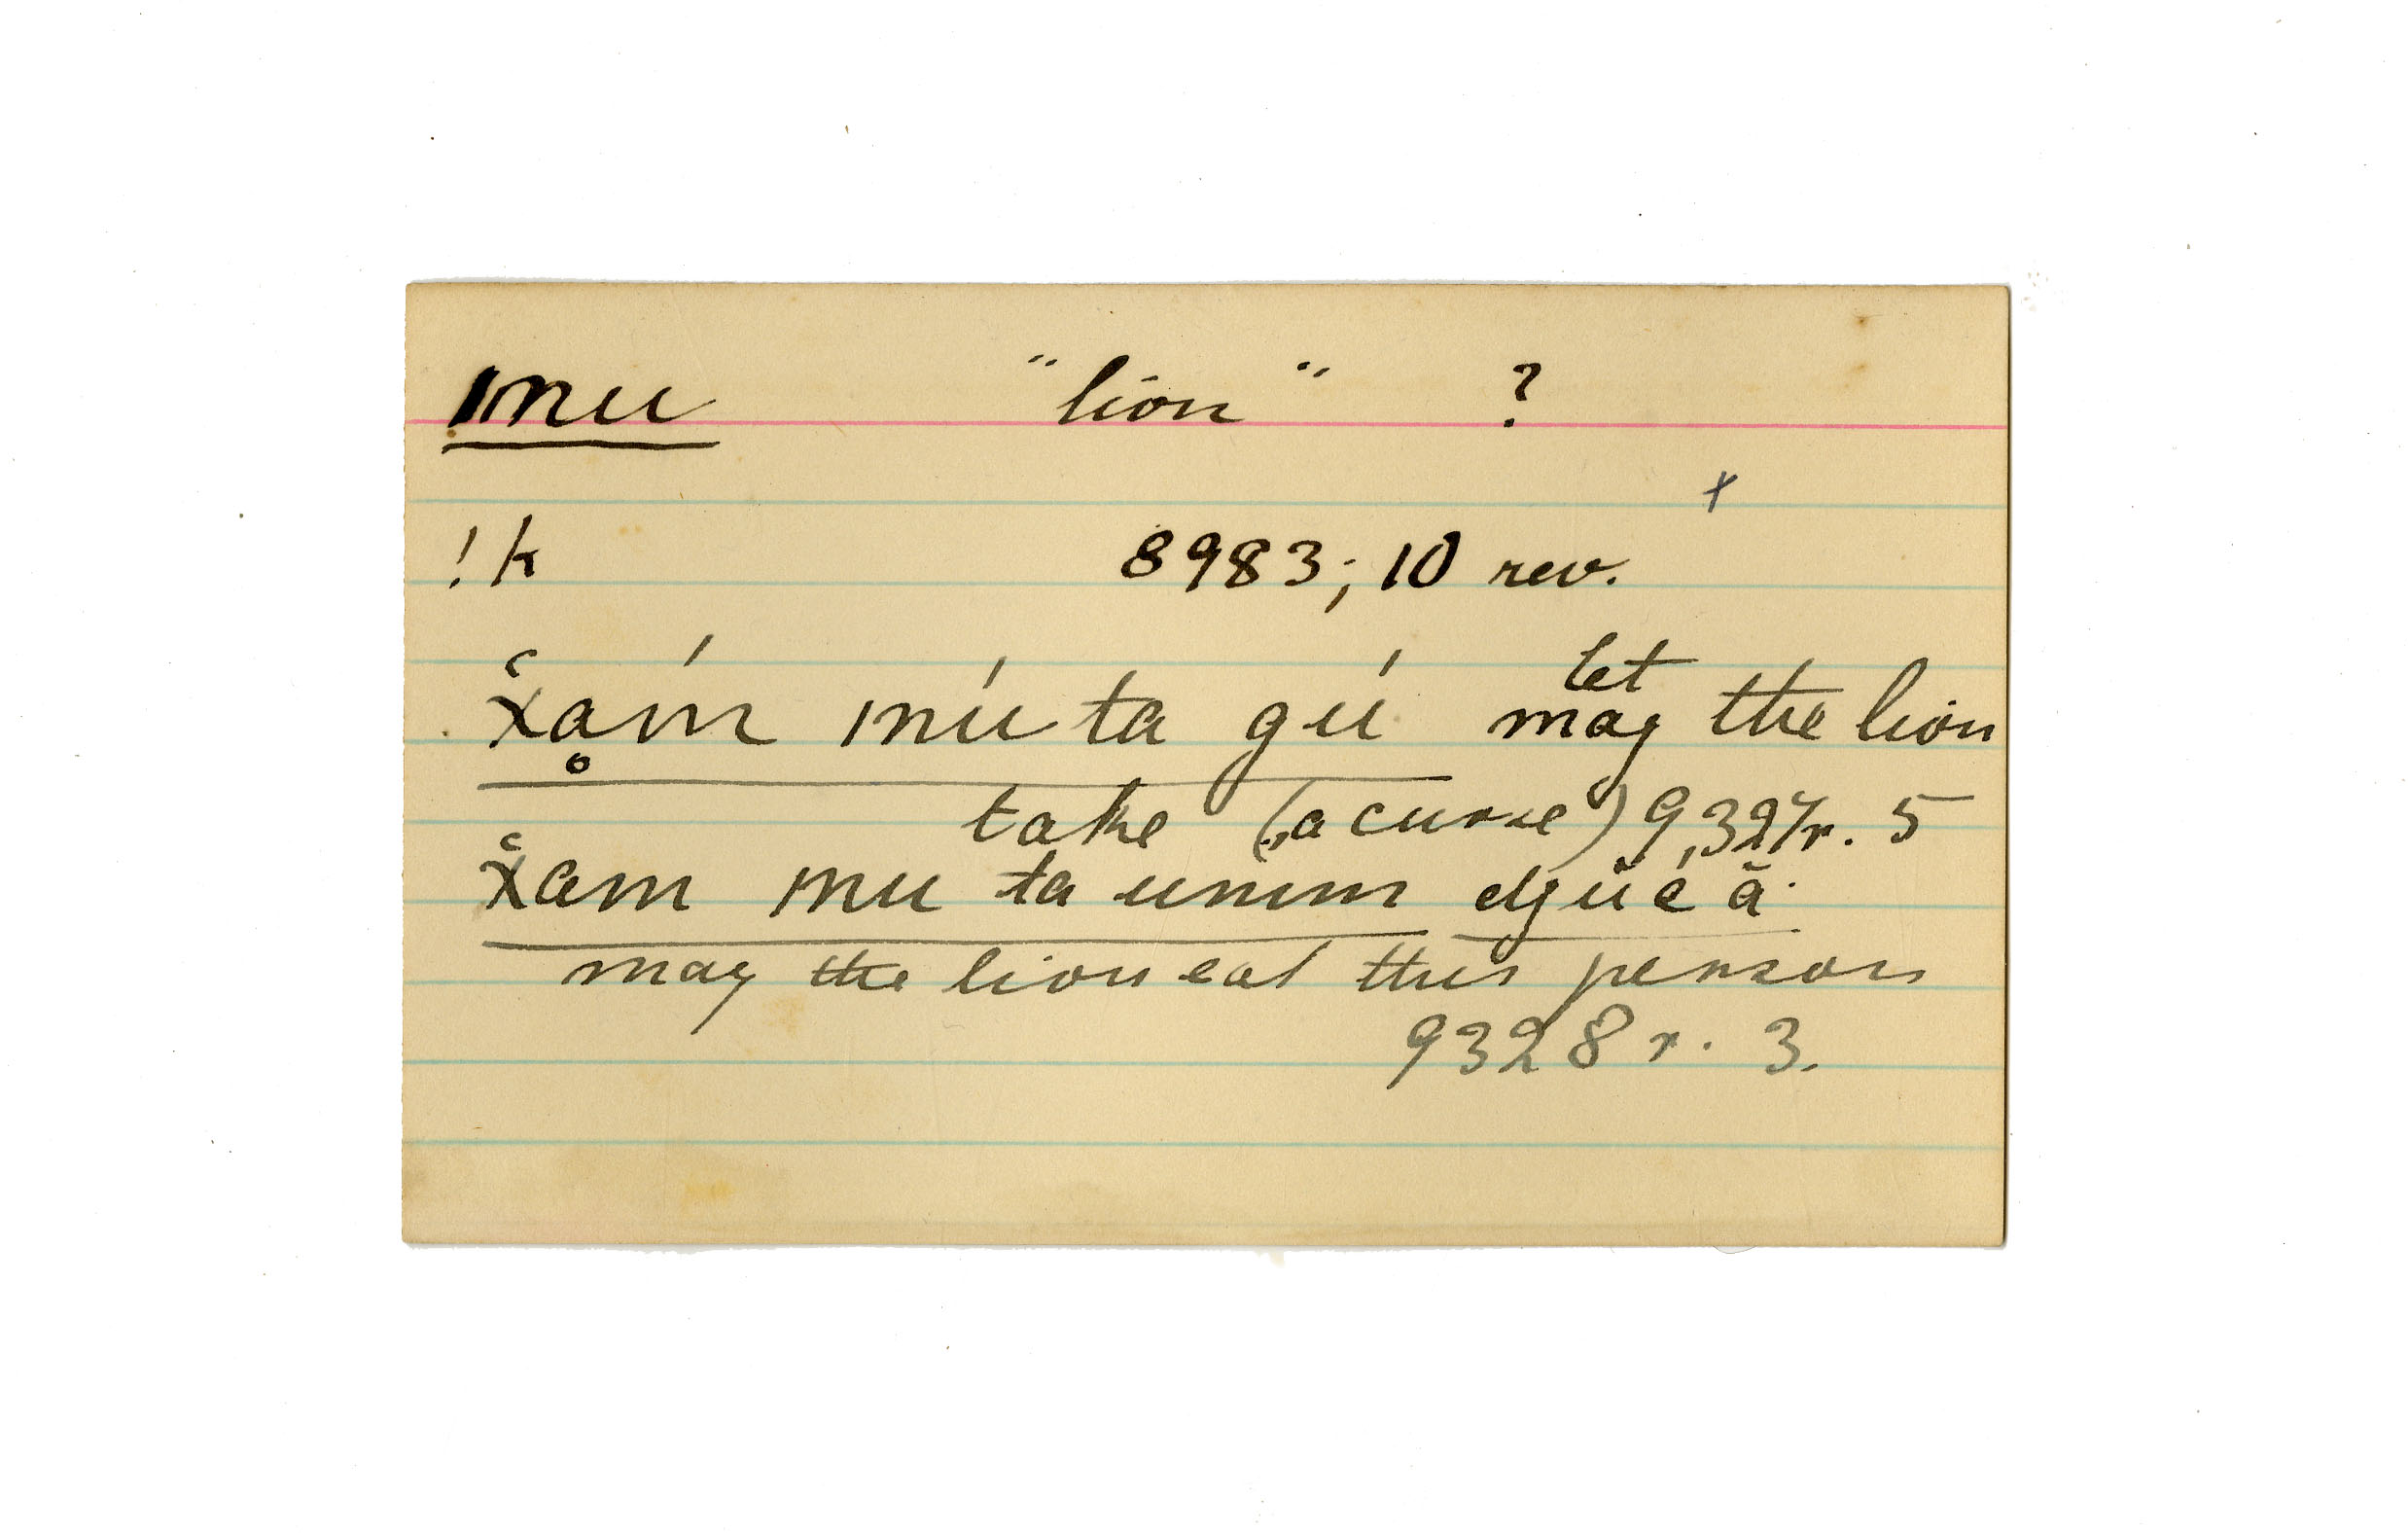 mu "lion" ?
x
!k 8983; 10 rev.
x̌ạḿ mú ta gú let may the lion
take (a curse) 9,327r. 5
x̌am mu ta unum
may the lion eat this person
9328 r. 3.